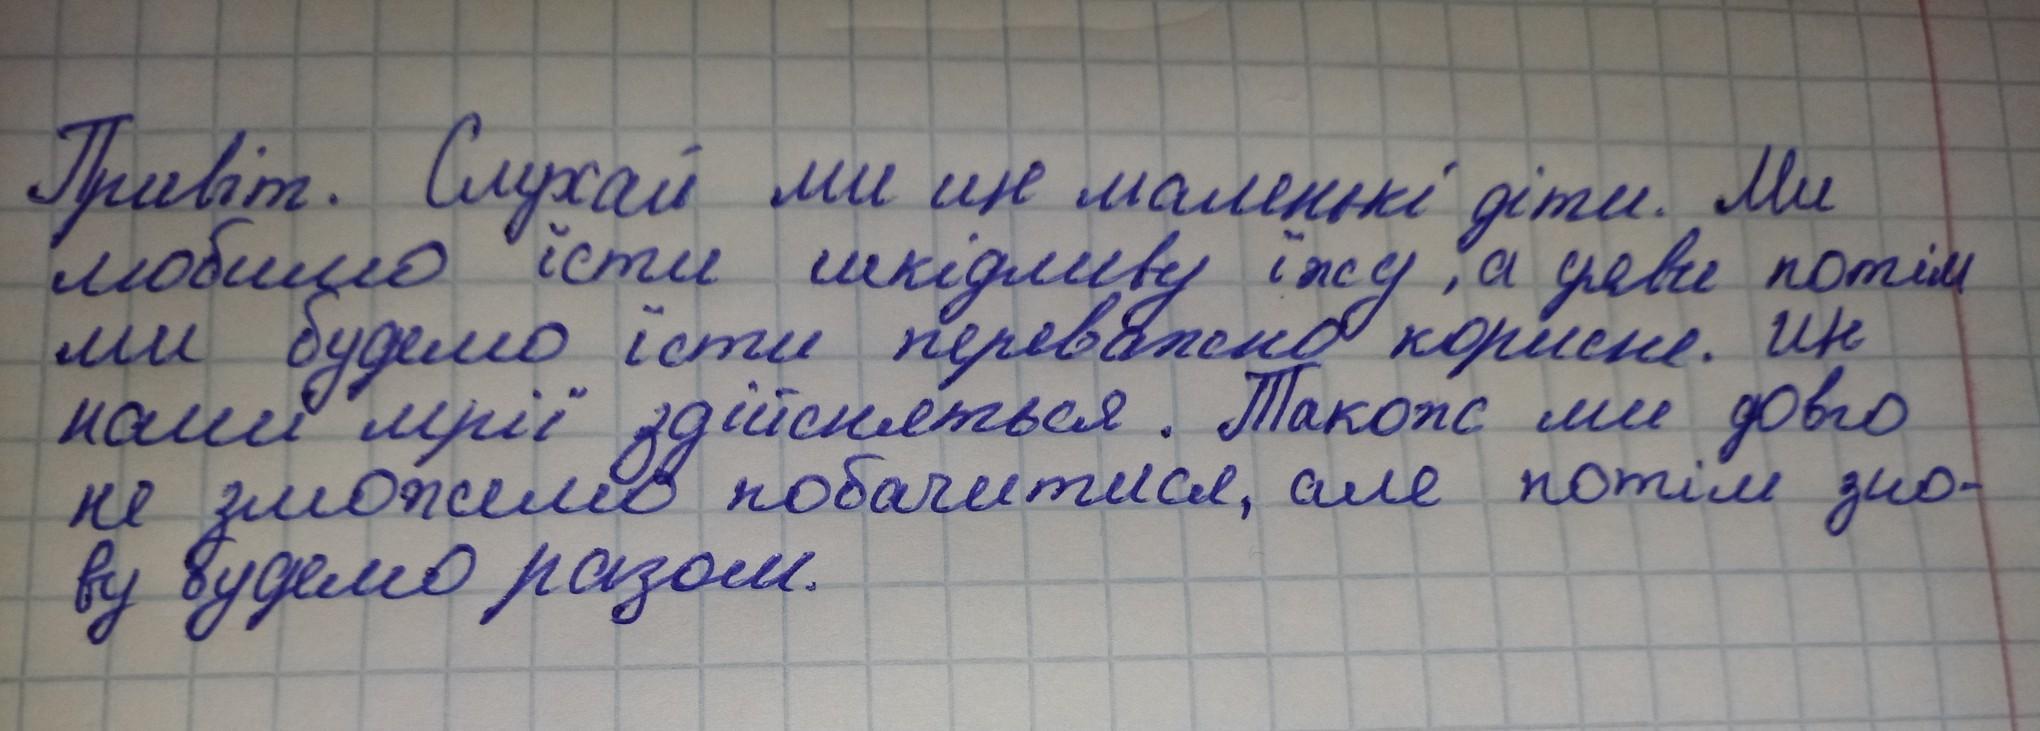 Привіт. Слухай ми ще маленькі діти. Ми
любимо їсти шкідливу їжу, а уяви потім
ми будемо їсти переважно корисне. Ще
наши мрії здійсняться. Також ми довго
не зможемо побачитися, але потім зно-
ву будемо разом.